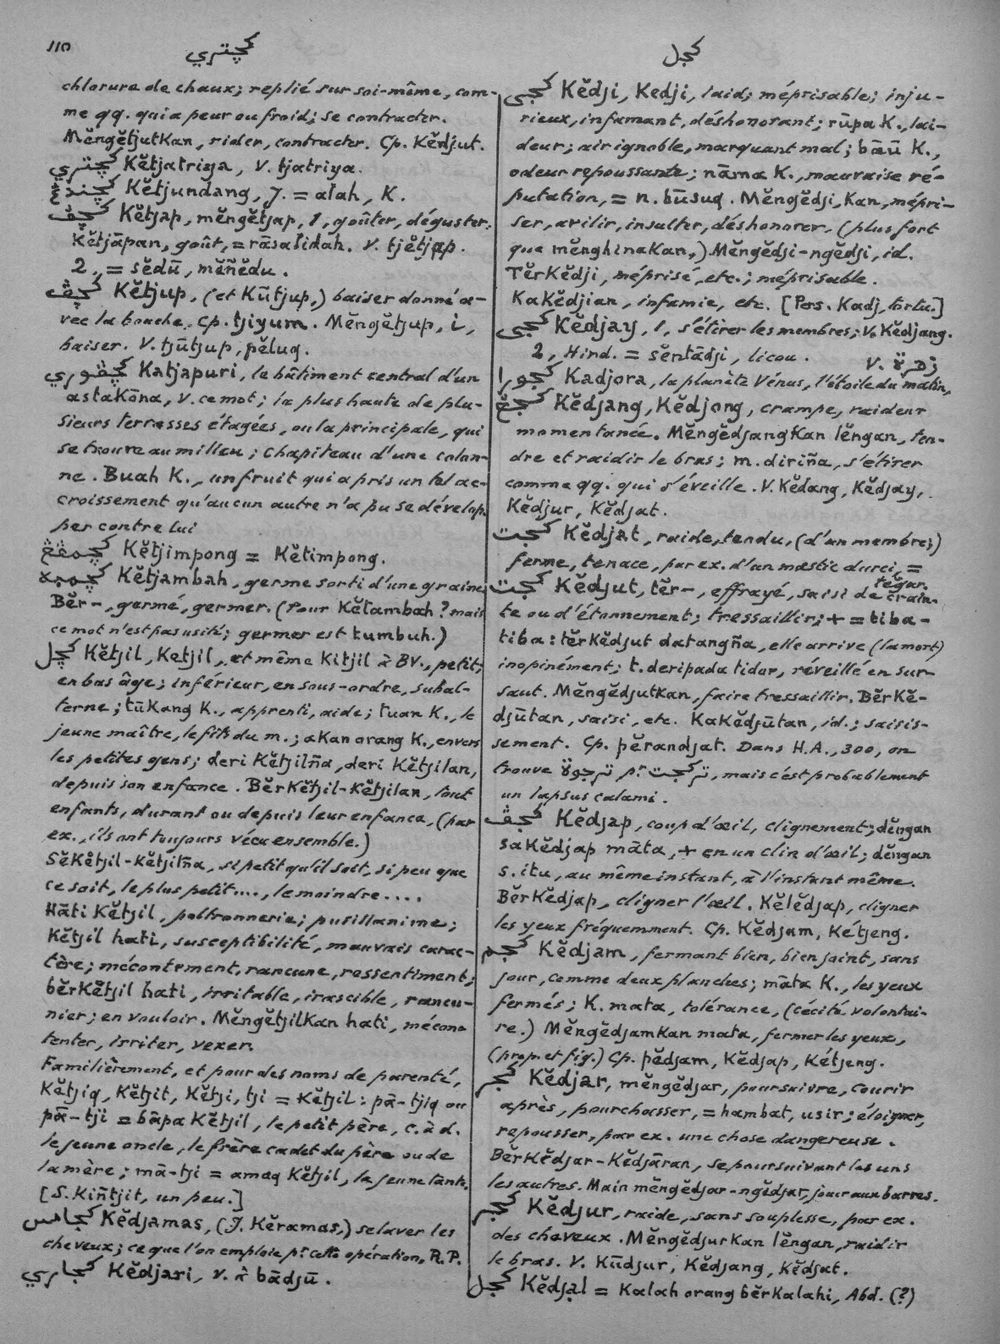 110
كچتري
كجل
chlorure de chaux; replié sur soi-même, com-
me qq. qui a peur ou froid; se contracter.
Mĕngĕtjutkan, rider, contracter. Cp. Kĕdjut.
كچتري Kĕtjatriya, V. tjatriya.
كچندڠ Kĕtjundang, J. = alah, K.
كچڤ Kĕtjap, mĕngĕtjap, 1, goûter, déguster.
Kĕtjāpan, goût, = rāsalidah. V. tjĕtjap.
2, = sĕdū, mĕñĕdu.
كچڤ Kĕtjup, (et Kūtjup,) baiser donné a-
vec la bouche. Cp. tjiyum. Mĕngĕtjup, i,
baiser. V. tjūtjup, pĕluq.
كچڤوري Katjapuri, le bâtiment central d'un
astakōna, V. ce mot; la plus haute de plu-
sieurs terrasses étagées, ou la principale, qui
se trouve au milieu; chapiteau d'une colon-
ne. Buah K., un fruit qui a pris un tel ac-
croissement qu'aucun autre n'a pu se dévelop-
per contre lui
كچمڤڠ Kĕtjimpong = Kĕtimpong.
كچمبه Kĕtjambah, germe sorti d'une graine;
Bĕr-, germé, germer. (Pour Kĕtambah? mais
ce mot n'est pas usité; germer est tumbuh.)
كچل Kĕtjil, Ketjil, et même Kitjil à BV., petit;
en bas âge; inférieur, en sous-ordre, subal-
terne; tūkang K., apprenti, aide; tuan K., le
jeune maître, le fils du m.; akan orang K., envers
les petites gens; deri Kĕtjilña, deri Kĕtjilan,
depuis son enfance. Bĕrkĕtjil-Kĕtjilan, tout
enfants, durant ou depuis leur enfance, (par
ex., ils ont toujours vécu ensemble.)
Sĕkĕtjil-Kĕtjilña, si petit qu'il soit, si peu que
ce soit, le plus petit...., le moindre....
Hāti Kĕtjil, poltronnerie; pusillanime;
Kĕtjil hati, susceptibilité, mauvais carac-
tère; mécontement, rancune, ressentiment;
bĕrkĕtjil hati, irritable, irascible, rancu-
nier; en vouloir. Mĕngĕtjilkan hati, mécon-
tenter, irriter, vexer.
Familièrement, et pour des noms de parenté,
Kĕtjiq, Kĕtjit, Kĕtji, tji = Kĕtjil: pā-tjiq ou
pā-tji = bāpa Kĕtjil, le petit père, c. à d.
le jeune oncle, le frère cadet du père ou de
la mère; mā-tji = amaq Kĕtjil, la jeune tante.
[S. Kiñtjit, un peu.]
كجامس Kĕdjamas, (J. Kĕramas,) se laver les
cheveux; ce que l'on emploie pr cette opération, R.P.
كجاري Kĕdjari, V. à bādjū.
كجى Kĕdji, Kedji, laid; méprisable; inju-
rieux, infamant, déshonorant; rūpa K., lai-
deur; air ignoble, marquant mal; bāū K.,
odeur repoussante; nāma K., mauvaise ré-
putation, = n. būsuq. Mĕngĕdji, Kan, mépri-
ser, avilir, insulter, déshonorer, (plus fort
que mĕnghinakan,) Mĕngĕdji-ngĕdji, id.
Tĕrkĕdji, méprisé, etc.; méprisable.
Kakĕdjian, infamie, etc. [Pers. Kadj, tortu.]
كجي Kĕdjay, 1, s'étirer les membres; V. Kĕdjang.
2, Hind. = sĕntādji, licou.
V. زهرة
كجورا Kadjora, la planète Vénus, l'étoile du matin,
كجڠ Kĕdjang, Kĕdjong, crampe, raideur
momentanée. Mĕngĕdjangkan lĕngan, ten-
dre et raidir le bras; m. diriña, s'étirer
comme qq. qui s'éveille. V. Kĕdang, Kĕdjay,
Kĕdjur, Kĕdjat.
كجت Kĕdjat, raide, tendu, (d'un membre;)
ferme, tenace, par ex. d'un mastic durci, =
tĕgar.
كجت Kĕdjut, tĕr-, effrayé, saisi de crain-
te ou d'étonnement; tressaillir; + = tiba-
tiba: tĕrkĕdjut datangña, elle arrive (la mort)
inopinément; t. deripada tidor, réveillé en sur-
saut. Mĕngĕdjutkan, faire tressaillir. Bĕrkĕ-
djūtan, saisi, etc. Kakĕdjūtan, id.; saisis-
sement. Cp. pĕrandjat. Dans H.A., 300, on
trouve ترجوة pr تركجت, mais c'est probablement
un lapsus calami.
كجڤ Kĕdjap, coup d'œil, clignement; dĕngan
sakĕdjap māta, + en un clin d'œil; dĕngan
s. itu, au même instant, à l'instant même.
Bĕrkĕdjap, cligner l'œil. Kĕlĕdjap, cligner
les yeux fréquemment. Cp. Kĕdjam, Kétjeng.
كجم Kĕdjam, fermant bien, bien joint, sans
jour, comme deux planches; māta K., les yeux
fermés; K. mata, tolérance, (cécité volontai-
re.) Mĕngĕdjamkan mata, fermer les yeux,
(prop. et fig.) Cp. pĕdjam, Kĕdjap, Kétjeng.
كجر Kĕdjar, mĕngĕdjar, poursuivre, courir
après, pourchasser, = hambat, usir; éloigner,
repousser, par ex. une chose dangereuse.
Bĕrkĕdjar-Kĕdjāran, se poursuivant les uns
les autres. Main mĕngĕdjar-ngĕdjar, jouer aux barres.
كجر Kĕdjur, raide, sans souplesse, par ex.
des cheveux. Mĕngĕdjurkan lĕngan, raidir
le bras. V. Kūdjur, Kĕdjang, Kĕdjat.
كجل Kĕdjal = Kalah orang bĕrkalahi, Abd. (?)